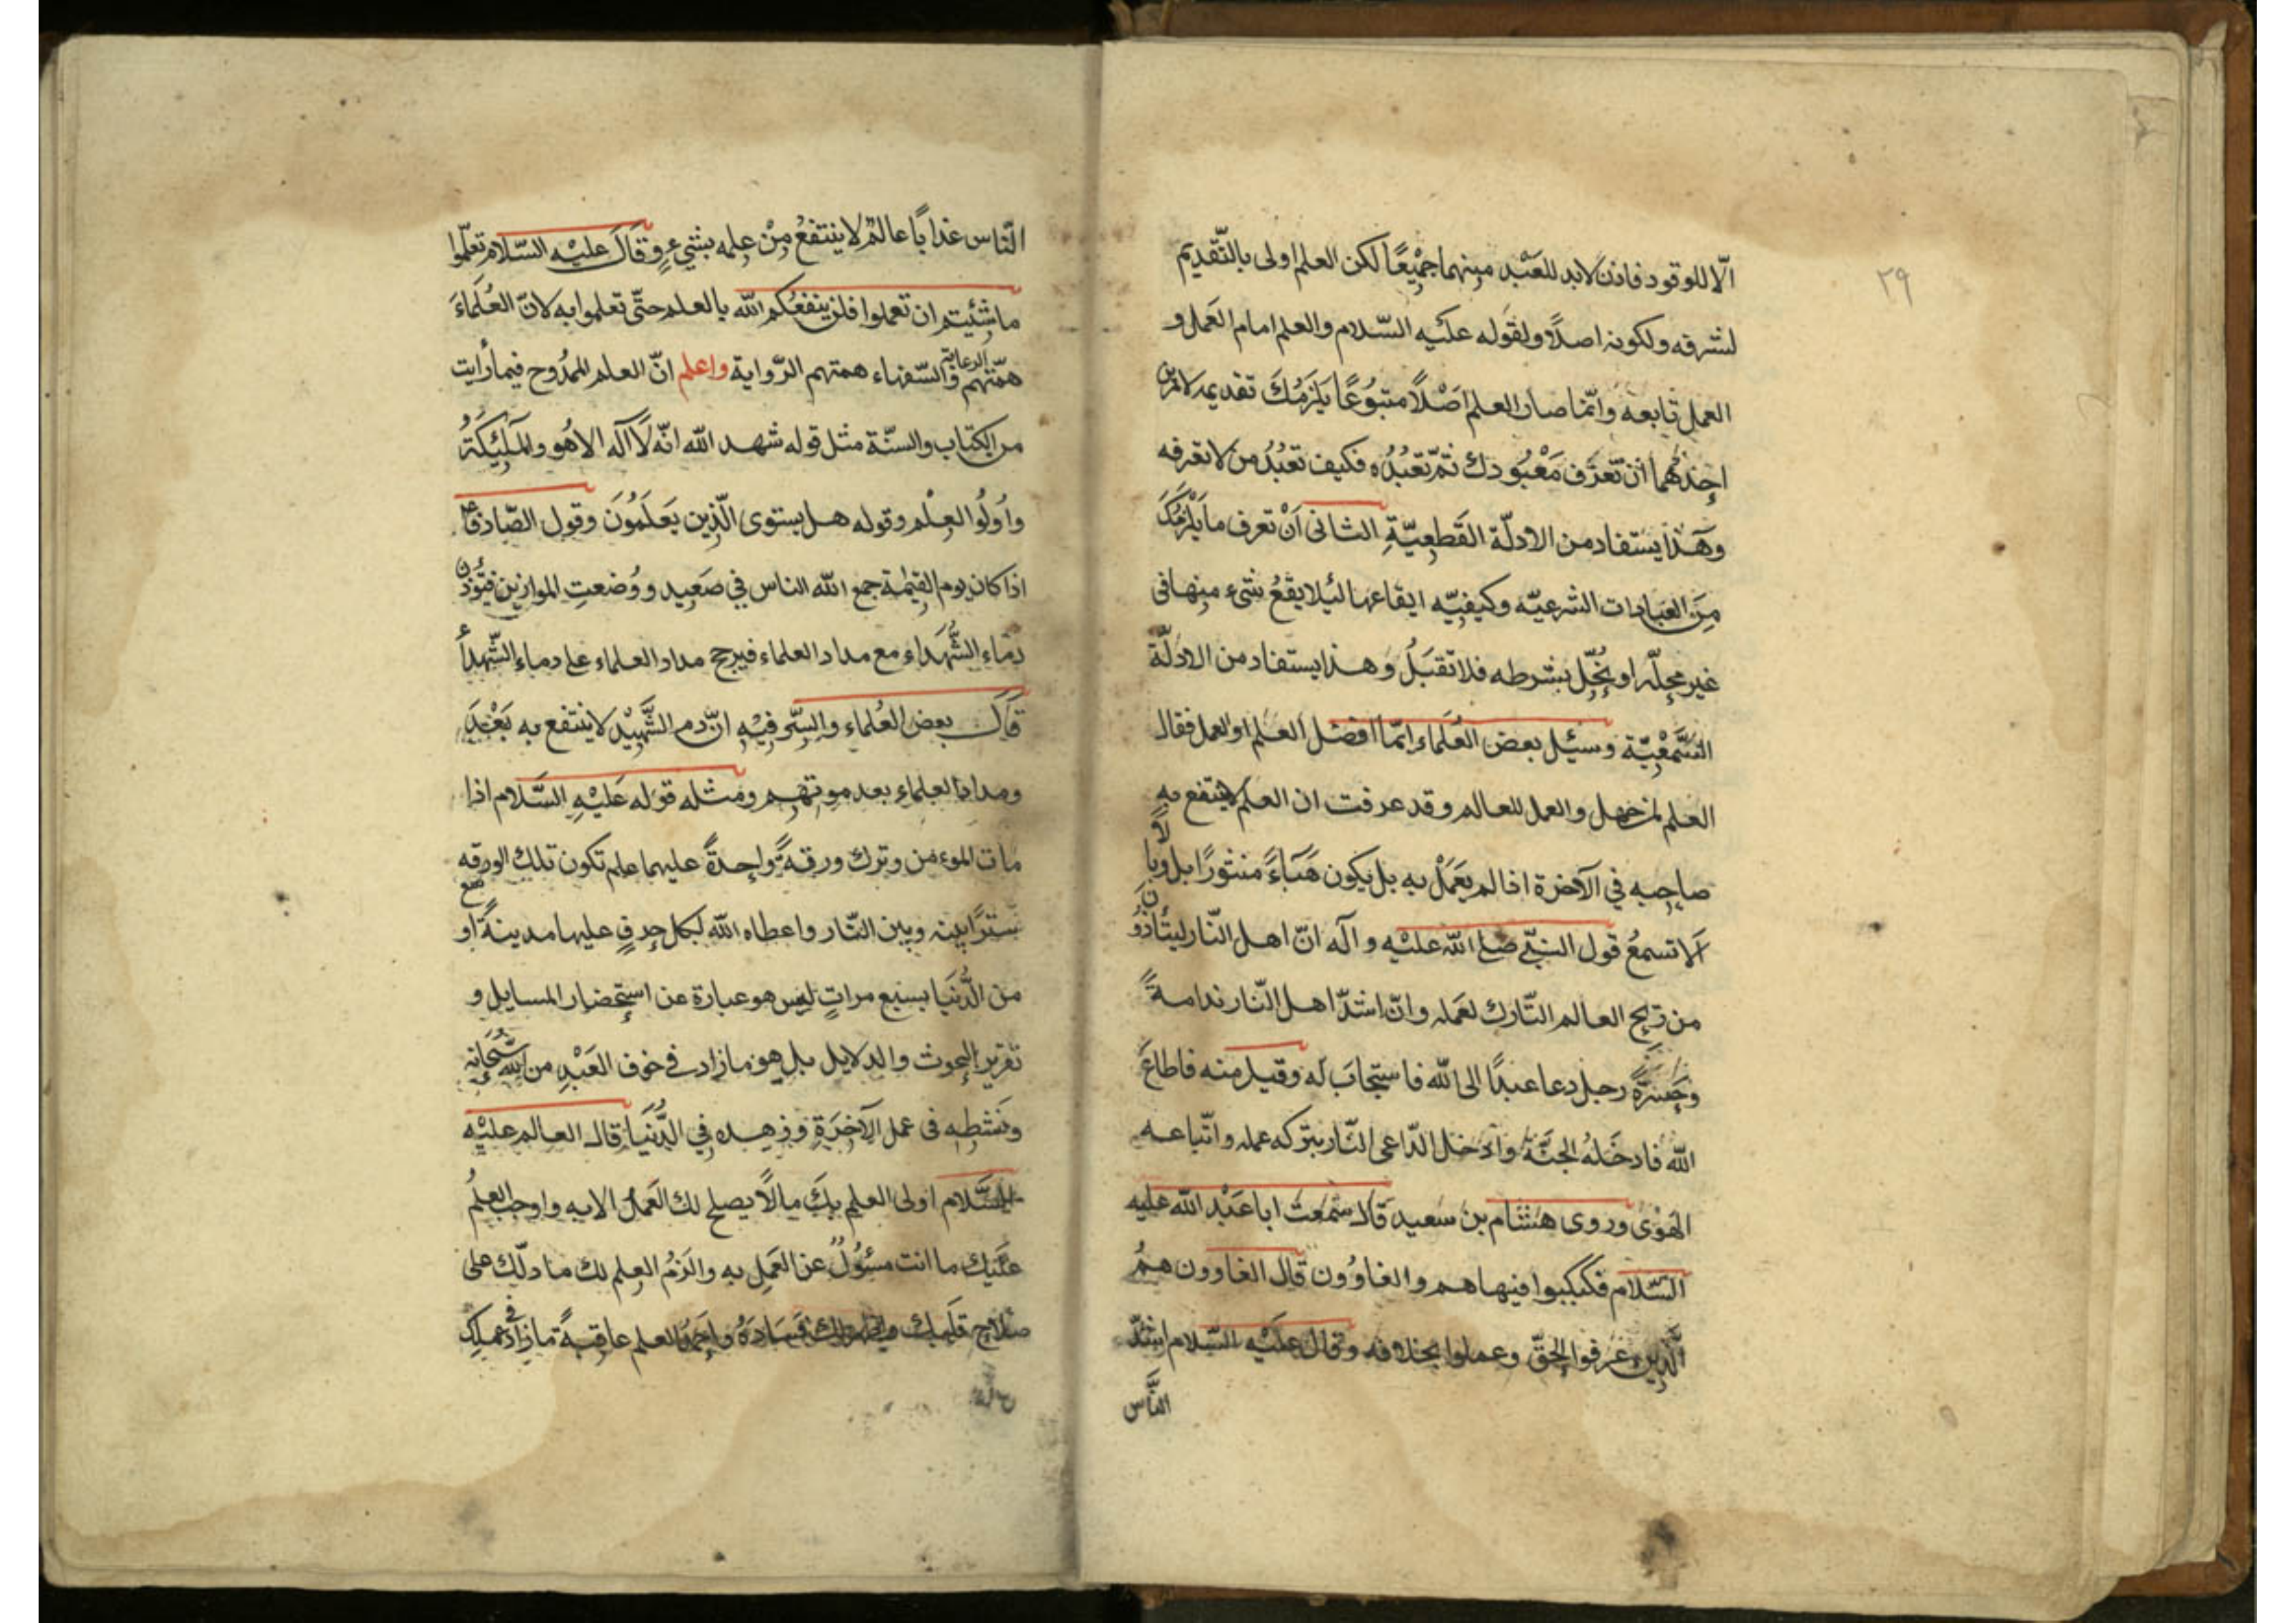 ٢٩
الّا للوقود فاذن لابد للعَبْد مِنهما جمْيعًا لكن العلم اولى بالتّقديم
لشرفه ولكونه اصلًا ولقوله عليه السّلام والعلم امام العَمل و
العمل تابعه وانّما صار العلم اصْلًا متبُوعًا يَلزمُكَ تقديمه لامرين
احِدهُما انْ تعَرَف مَعْبُودك ثمّ تعْبُدُه فكيف تعبُدُ من لا تعرفه
وهَذا يستفاد من الادلّة القَطعِيّةِ الثانى اَنْ تعرف ما يَلزمُكَ
مِنَ العبادات الشرعيّه وكيفيّه ايقاعها لئلا يقَعُ شىء مِنها فى
غير محِلّه او يُخِلّ بشرطه فلا تقبَلُ وهذا يستفاد من الادلّة
السَّمْعِيّة وسئِل بعض العُلَماء ايّما افضل العلم او العمل فقال
العلم لمن جهل والعمل للعالم وقد عرفت ان العلم لا ينتفع به
صاحِبه فى الآخرة اذا لم يعَمَلْ به بل يكون هَبَاءً منثورًا بل وبالًا
اَلا تسمعُ قول النبّى صلى الله عليْه وآله انّ اهل النّار ليتأذون
من رِيح العالم التّارك لعَمله وانّ اشدّ اهل النّار ندامةً
وحَسْرَةً رجل دعا عبدًا الى الله فاستجابَ له وقبل منه فاطاعَ
الله فادخَلهُ الجَنّة وادخل الدّاعى النّار بتركه عمله واتّباعه
الهَوْى وروى هشام بن سعيد قال سَمعتُ ابا عَبْد الله عليه
السّلام فكبكبوا فيها هم والغاوُون قال الغاوون همُ
الّذِينَ عَرفوا الحقّ وعملوا بخلافه وقال عليْه السّلام اشدّ
النَّاس
النّاس عذابًا عالمٌ لا ينتفعُ مِنْ عِلمه بشىءٍ وقَالَ عليْه السّلام تعلّموا
ما شئِتم ان تعملوا فلن ينفعُكم الله بالعلم حتّى تعلموا به لانّ العُلَماءَ
همّتهم الرعاية والسّفهاء همتهم الرّواية واعلم انّ العلم الممدُوح فيما رأيت
من الكتاب والسنّة مثل قوله شهد الله انّه لا آله الا هُو والملئِكَةُ
واُولُوا العِلْم وقوله هل يستوى الّذِين يَعلَمُونَ وقول الصّادق ع
اذا كان يوم القيٰمة جمع الله الناس فى صَعيد ووُضعتِ الموازين فتوُزن
دمَاء الشُّهَداء مع مداد العلماء فيرجح مداد العلماء على دماء الشّهداءِ
قَالَ بعض العُلماء والسِرّ فيْه انّ دم الشّهيْد لا ينتفع به بَعْدَ
ومداد العلماء بعد موتهم ومثله قوله عَليْهِ السَّلام اذا
مات المؤمن وترك ورقةً واحِدةً عليهما علم تكون تلك الورقه
سَترًا بينه وبين النّار واعطاه الله لبكل حرفٍ عليها مدينةً اوسع
من الدُّنيَا بسبع مراتٍ ليس هو عبارة عن استِحضار المسايل و
تقرير البحوث والدلايل بل هو ما زاد فى خوف العَبْدِ من الله سُبحَانه
ونشطه فى عمل الآخِرَةِ وزهده فِي الدُّنيَا قال العالم عليْه
السَّلام اولى العلم بِكَ ما لا يصلح لك العَمل الا به واوجب العِلمُ
عَليَك ما انت مسئُولٌ عن العَمِل به والزَمُ العِلم لك ما دلّك على
صلاح قلبك واظهر لك فسادَهُ واحمَدُ العلم عاقبةً ما زاد فى عملك